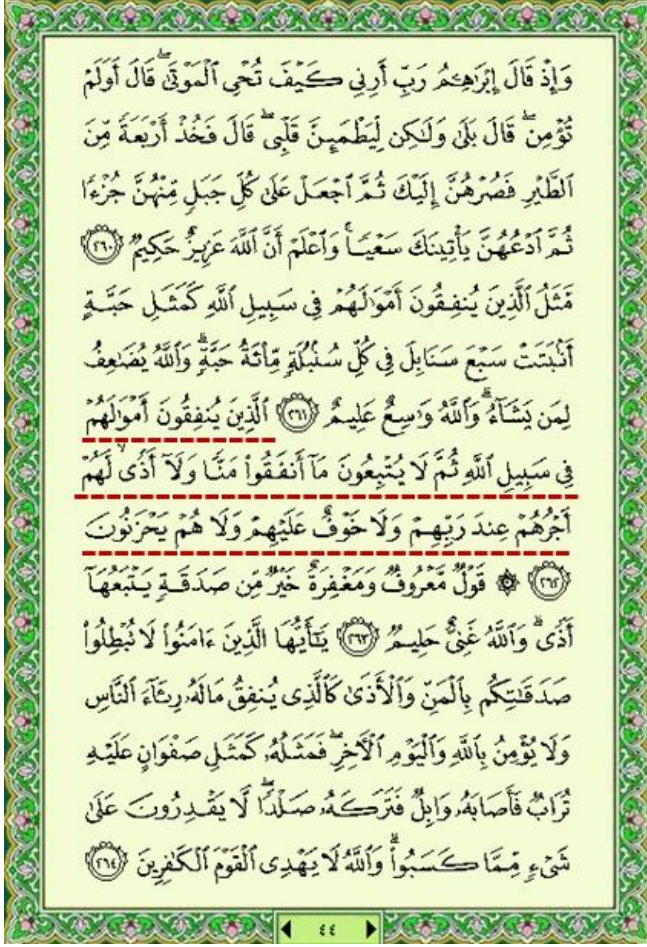 وَإِذْ قَالَ إِبْرَٰهِـۧمُ رَبِّ أَرِنِي كَيْفَ تُحْيِ ٱلْمَوْتَىٰ ۖ قَالَ أَوَلَمْ
تُؤْمِن ۖ قَالَ بَلَىٰ وَلَٰكِن لِّيَطْمَئِنَّ قَلْبِي ۖ قَالَ فَخُذْ أَرْبَعَةً مِّنَ
ٱلطَّيْرِ فَصُرْهُنَّ إِلَيْكَ ثُمَّ ٱجْعَلْ عَلَىٰ كُلِّ جَبَلٍ مِّنْهُنَّ جُزْءًا
ثُمَّ ٱدْعُهُنَّ يَأْتِينَكَ سَعْيًا ۚ وَٱعْلَمْ أَنَّ ٱللَّهَ عَزِيزٌ حَكِيمٌ ﴿٢٦٠﴾
مَّثَلُ ٱلَّذِينَ يُنفِقُونَ أَمْوَٰلَهُمْ فِي سَبِيلِ ٱللَّهِ كَمَثَلِ حَبَّةٍ
أَنۢبَتَتْ سَبْعَ سَنَابِلَ فِي كُلِّ سُنۢبُلَةٍ مِّا۟ئَةُ حَبَّةٍ ۗ وَٱللَّهُ يُضَٰعِفُ
لِمَن يَشَآءُ ۗ وَٱللَّهُ وَٰسِعٌ عَلِيمٌ ﴿٢٦١﴾ ٱلَّذِينَ يُنفِقُونَ أَمْوَٰلَهُمْ
فِي سَبِيلِ ٱللَّهِ ثُمَّ لَا يُتْبِعُونَ مَآ أَنفَقُوا۟ مَنًّا وَلَآ أَذًى ۙ لَّهُمْ
أَجْرُهُمْ عِندَ رَبِّهِمْ وَلَا خَوْفٌ عَلَيْهِمْ وَلَا هُمْ يَحْزَنُونَ
﴿٢٦٢﴾ ۞ قَوْلٌ مَّعْرُوفٌ وَمَغْفِرَةٌ خَيْرٌ مِّن صَدَقَةٍ يَتْبَعُهَآ
أَذًى ۗ وَٱللَّهُ غَنِيٌّ حَلِيمٌ ﴿٢٦٣﴾ يَٰٓأَيُّهَا ٱلَّذِينَ ءَامَنُوا۟ لَا تُبْطِلُوا۟
صَدَقَٰتِكُم بِٱلْمَنِّ وَٱلْأَذَىٰ كَٱلَّذِي يُنفِقُ مَالَهُۥ رِئَآءَ ٱلنَّاسِ
وَلَا يُؤْمِنُ بِٱللَّهِ وَٱلْيَوْمِ ٱلْـَٔاخِرِ ۖ فَمَثَلُهُۥ كَمَثَلِ صَفْوَانٍ عَلَيْهِ
تُرَابٌ فَأَصَابَهُۥ وَابِلٌ فَتَرَكَهُۥ صَلْدًا ۖ لَّا يَقْدِرُونَ عَلَىٰ
شَيْءٍ مِّمَّا كَسَبُوا۟ ۗ وَٱللَّهُ لَا يَهْدِي ٱلْقَوْمَ ٱلْكَٰفِرِينَ ﴿٢٦٤﴾
٤٤